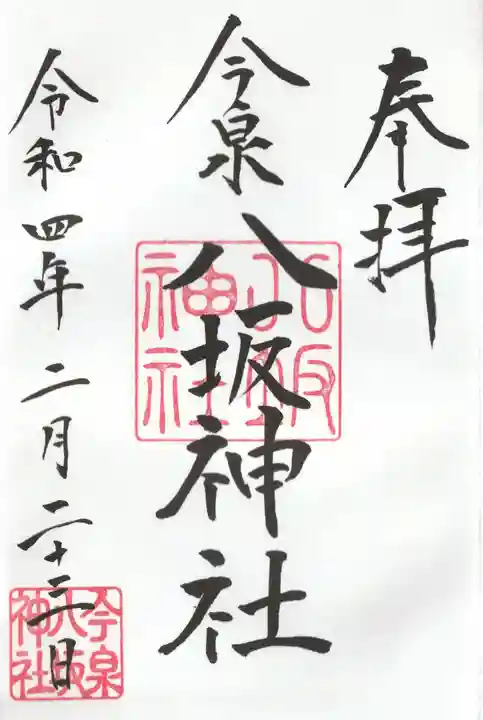 奉拝
今泉
八坂神社
令和四年二月二十三日
八坂神社
今泉八坂神社